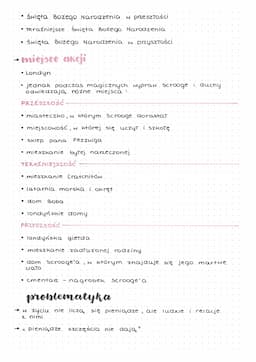 • Święta Bożego Narodzenia w przeszłości
• teraźniejsze Święta Bożego Narodzenia
• Święta Bożego Narodzenia w przyszłości
→ miejsce akcji
• Londyn
• jednak podczas magicznych wypraw Scrooge i duchy
odwiedzają różne miejsca:
PRZESZŁOŚĆ
• miasteczko, w którym Scrooge dorastał
• miejscowość, w której się uczył i szkołę
• sklep pana Fezziwiga
• mieszkanie byłej narzeczonej
TERAŹNIEJSZOŚĆ
• mieszkanie Cratchitów
• latarnia morska i okręt
• dom Boba
• londyńskie domy
PRZYSZŁOŚĆ
• londyńska giełda
• mieszkanie zadłużonej rodziny
• dom Scrooge'a, w którym znajduje się jego martwe
ciało
• cmentarz - nagrobek Scrooge'a
problematyka
→ w życiu nie liczą się pieniądze, ale ludzie i relacje
z nimi
→ „pieniądze szczęścia nie dają"